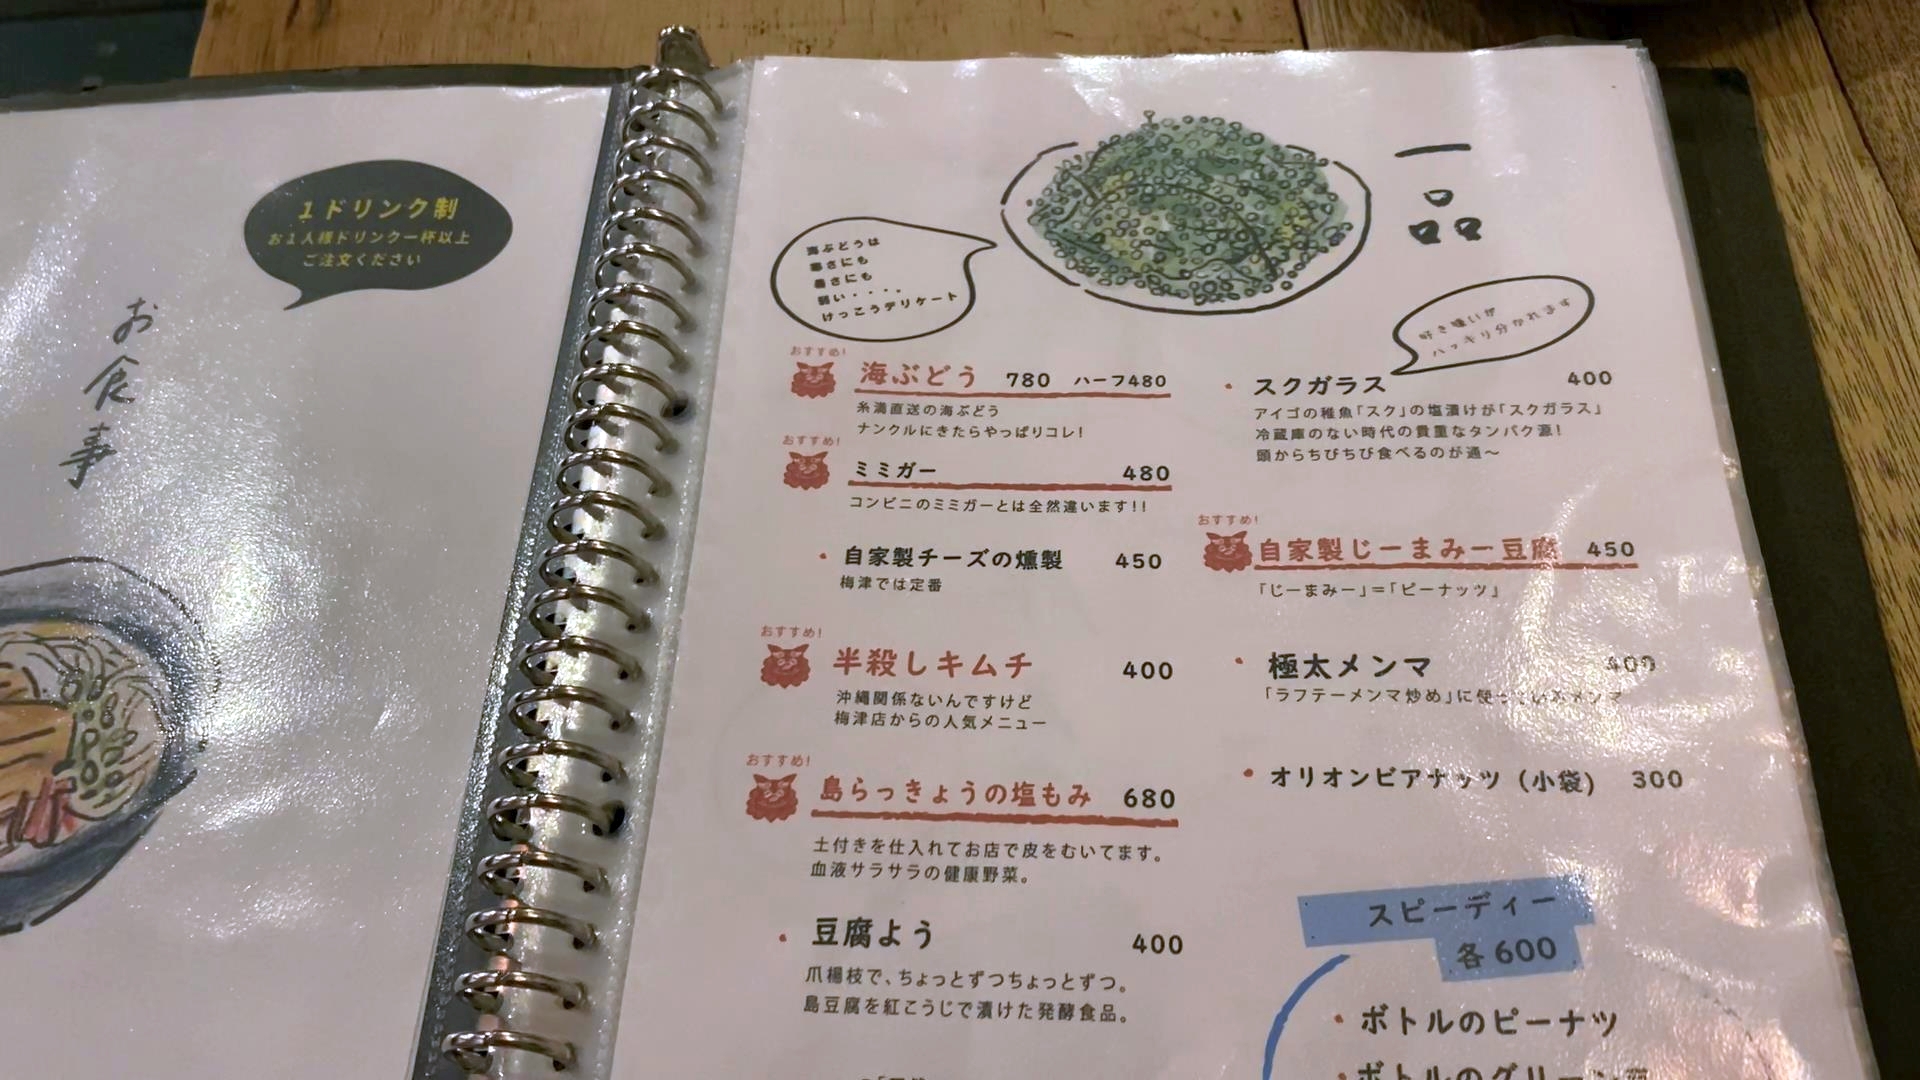 1ドリンク制
お1人様ドリンク一杯以上
ご注文ください
お食事
一品
海ぶどうは
寒さにも
暑さにも
弱い・・・・
けっこうデリケート
おすすめ!
海ぶどう 780 ハーフ480
糸満直送の海ぶどう
ナンクルにきたらやっぱりコレ!
おすすめ!
ミミガー 480
コンビニのミミガーとは全然違います!!
・自家製チーズの燻製 450
梅津では定番
おすすめ!
半殺しキムチ 400
沖縄関係ないんですけど
梅津店からの人気メニュー
おすすめ!
島らっきょうの塩もみ 680
土付きを仕入れてお店で皮をむいてます。
血液サラサラの健康野菜。
・豆腐よう 400
爪楊枝で、ちょっとずつちょっとずつ。
島豆腐を紅こうじで漬けた発酵食品。
好き嫌いが
ハッキリ分かれます
・スクガラス 400
アイゴの稚魚「スク」の塩漬けが「スクガラス」
冷蔵庫のない時代の貴重なタンパク源!
頭からちびちび食べるのが通〜
おすすめ!
自家製じーまみー豆腐 450
「じーまみー」=「ピーナッツ」
・極太メンマ 400
「ラフテーメンマ炒め」に使っているメンマ
・オリオンビアナッツ (小袋) 300
スピーディー
各600
・ボトルのピーナツ
・ボトルのグリーン